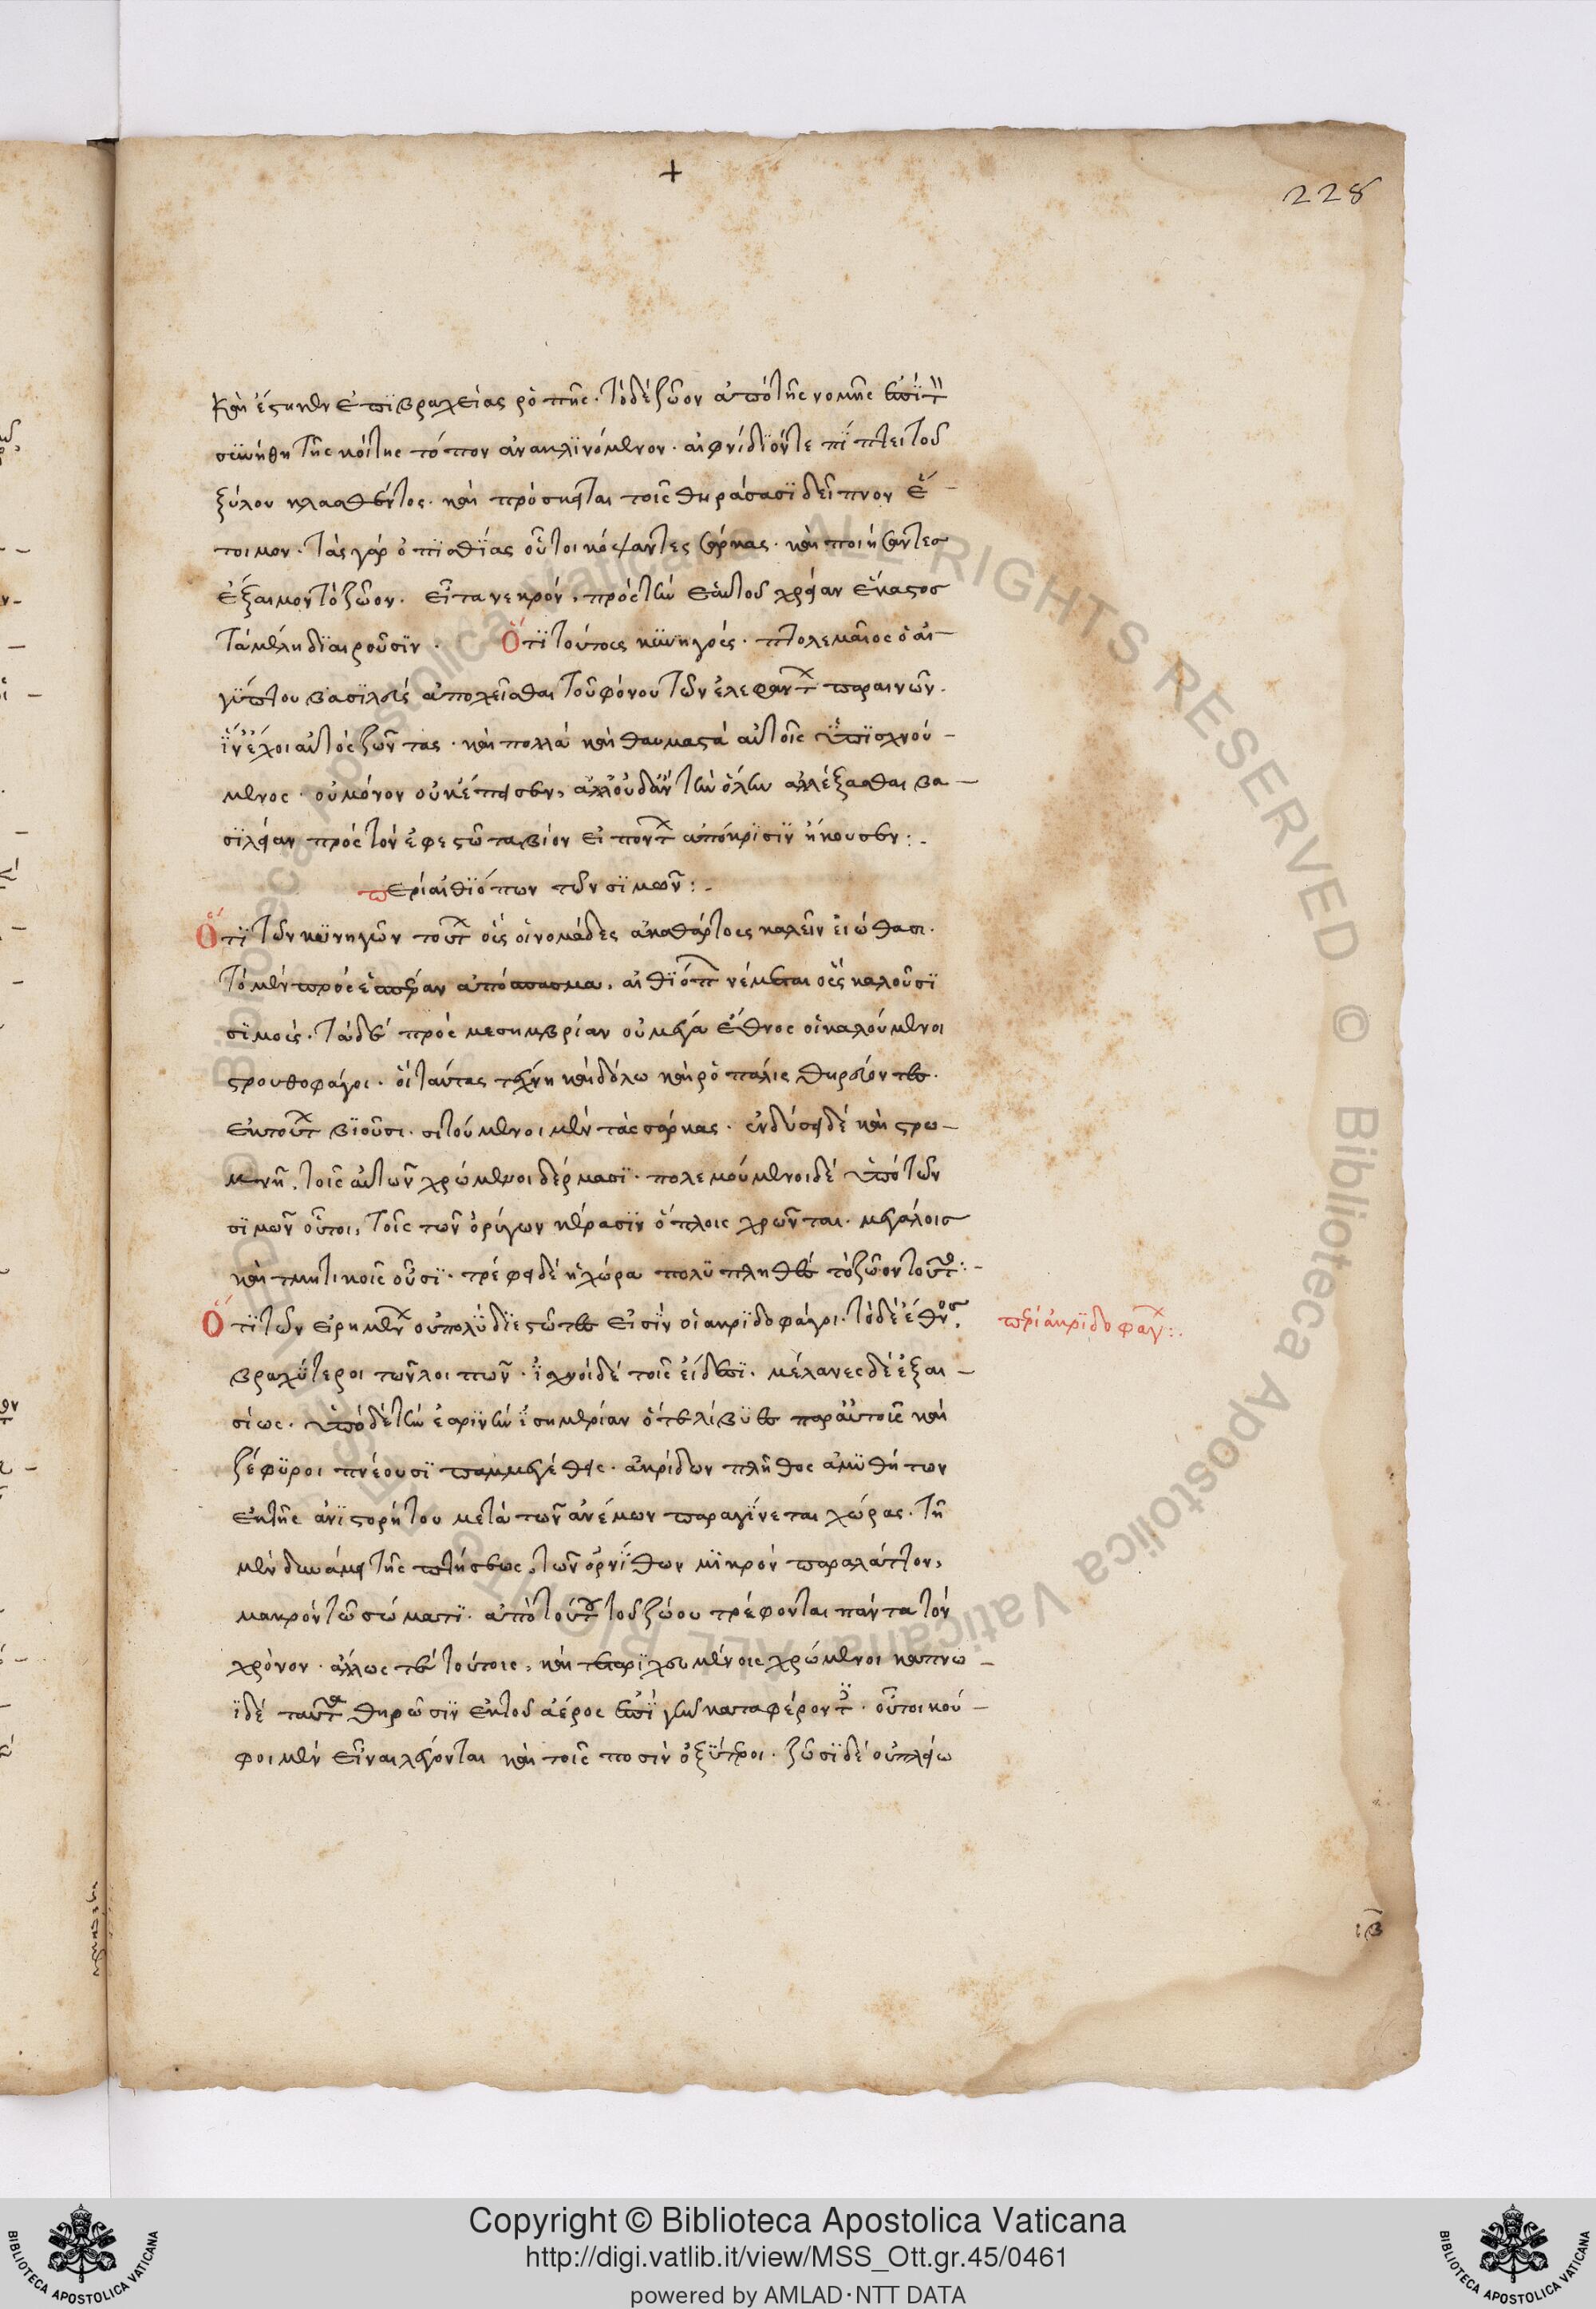 +
228
καὶ ἕστηκεν ἐπὶ βραχείας ῥοπῆς. τὸ δὲ ζῶον ἀπὸ τῆς νομῆς ἐπὶ τ
συνήθη τῆς κοίτης τόπον ἀνακλινόμενον. αἰφνιδιόν τε πίπτει τοῦ
ξύλου κλασθέντος. καὶ πρόσκειται τοῖς θηράσασι δεῖπνον ἕ-
τοιμον. τὰς γὰρ ὀπισθίας οὗτοι κόψαντες σάρκας. καὶ ποιήσαντες
ἔξαιμον τὸ ζῶον. εἶτα νεκρόν, πρὸς τὴν ἑαυτοῦ χρείαν ἕκαστος
τὰ μέλη διαιροῦσιν. Ὅτι τούτους κυνηγούς. πτολεμαῖος ὁ αἰ-
γύπτου βασιλεὺς ἀποσχεῖσθαι τοῦ φόνου τῶν ἐλεφάντ παραινῶν.
ἵν' ἔχοι αὐτοὺς ζῶντας. καὶ πολλὰ καὶ θαυμαστὰ αὐτοῖς ὑπισχνού-
μενος. οὐ μόνον οὐκ ἔπεισεν, ἀλλ' οὐδ' ἂν τὴν ὅλην ἀλλάξασθαι βα-
σιλείαν πρὸς τὸν ἐφεστῶτα βίον εἰπόντ ἀπόκρισιν ἤκουσεν:.
περὶ αἰθιόπων τῶν σιμῶν:.
Ὅτι τῶν κυνηγῶν τούτ οὓς οἱ νομάδες ἀκαθάρτους καλεῖν εἰώθασι.
τὸ μὲν πρὸς ἑσπέραν ἀπόσπασμα, αἰθίοπ νέμεται οὓς καλοῦσι
σιμούς. τὰ δὲ πρὸς μεσημβρίαν οὐ μέγα ἔθνος οἱ καλούμενοι
στρουθοφάγοι. οἳ ταύτας τέχνη καὶ δόλω καὶ ῥοπάλις θηρεύοντες.
ἐκ τούτ βιοῦσι. σιτούμενοι μὲν τὰς σάρκας. ἐνδύσει δὲ καὶ στρω-
μνῆ, τοῖς αὐτῶν χρώμενοι δέρμασι. πολεμούμενοι δὲ ὑπὸ τῶν
σιμῶν οὗτοι, τοῖς τῶν ὀρύγων κέρασιν ὅπλοις χρῶνται. μεγάλοις
καὶ τμητικοῖς οὖσι. τρέφει δὲ ἡ χώρα πολυπληθὲς τὸ ζῶον τοῦτ:-
Ὅτι τῶν εἰρημέν οὐ πολὺ διεστῶτες εἰσὶν οἱ ἀκριδοφάγοι. τὸ δὲ ἔθνος,
περὶ ἀκριδοφάγ:.
βραχύτεροι τῶν λοιπῶν. ἰσχνοὶ δὲ τοῖς εἴδεσι. μέλανες δὲ ἐξαι-
σίως. ὑπὸ δὲ τὴν ἐαρινὴν ἰσημερίαν ὅτε λίβυες παρ' αὐτοῖς καὶ
ζέφυροι πνέουσι παμμεγέθεις. ἀκρίδων πλῆθος ἀμυθήτων
ἐκ τῆς ἀνιστορήτου μετὰ τῶν ἀνέμων παραγίνεται χώρας. τῆ
μὲν δυνάμει τῆς πτήσεως, τῶν ὀρνίθων μικρὸν παραλάττον,
μακρὸν τῶ σώματι. ἀπὸ τούτου τοῦ ζώου τρέφονται πάντα τὸν
χρόνον. ἄλλως τε τούτοις, καὶ ταριχευμένοις χρώμενοι καπνῶ-
ι δὲ ταῦτα θηρῶσιν ἐκ τοῦ ἀέρος ἐπὶ γῆν καταφέροντ. οὗτοι κοῦ-
φοι μὲν εἶναι λέγονται καὶ τοῖς ποσὶν ὀξύτεροι. ζῶσι δὲ οὐ πλείω
ιβ
Copyright © Biblioteca Apostolica Vaticana
http://digi.vatlib.it/view/MSS_Ott.gr.45/0461
powered by AMLAD·NTT DATA